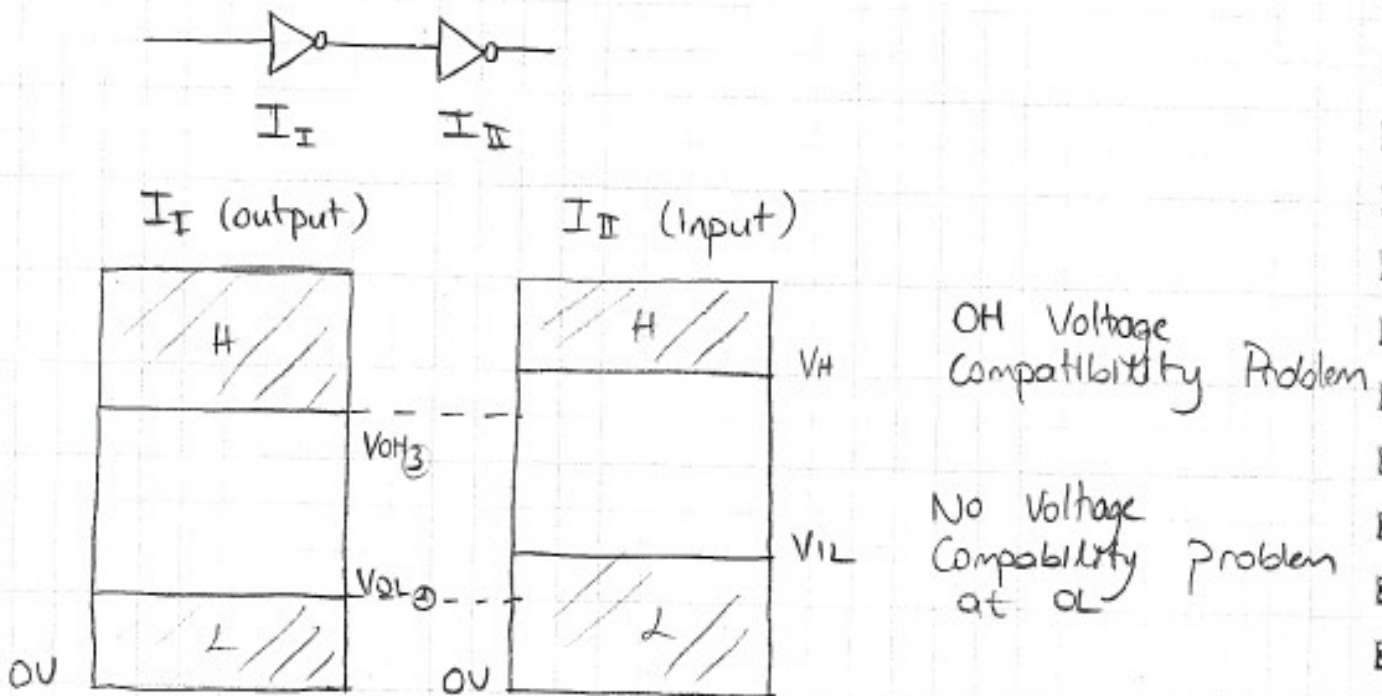 I_I I_II
I_I (output) I_II (input)
H H
OH Voltage
Compatibility Problem
VH
VOH③
No Voltage
Compability problem
at OL
VIL
VOL
L L
0V 0V